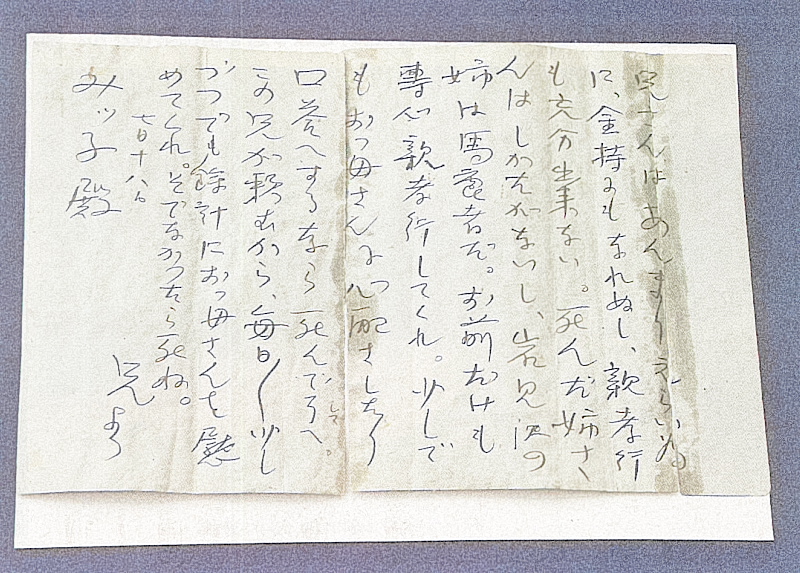 兄さんはあんまりえらい為
に、金持にもなれぬし、親孝行
も充分出来ない。死んだ姉さ
んはしかたがないし、岩見沢の
姉は馬鹿者だ。お前だけも
専心親孝行してくれ。少しで
もおっ母さんに心配さしたり
口答へするなら死んでろへ。
この兄が頼むから、毎日〱少し
づつでも余計におっ母さんを慰
めてくれ。そでなかったら死ね。
七月十八日
兄より
みツ子殿